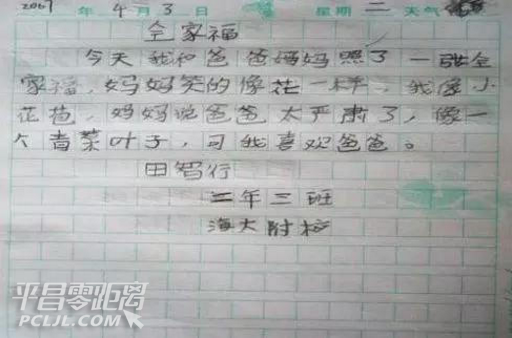 2007 年 4 月 3 日 星期二 天气
全家福
今天我和爸爸妈妈照了一张全
家福，妈妈笑的像花一样，我像小
花苞，妈妈说爸爸太严肃了，像一
个青菜叶子，可我喜欢爸爸。
田智行
二年三班
海大附校
平昌零距离
PCLJL.COM